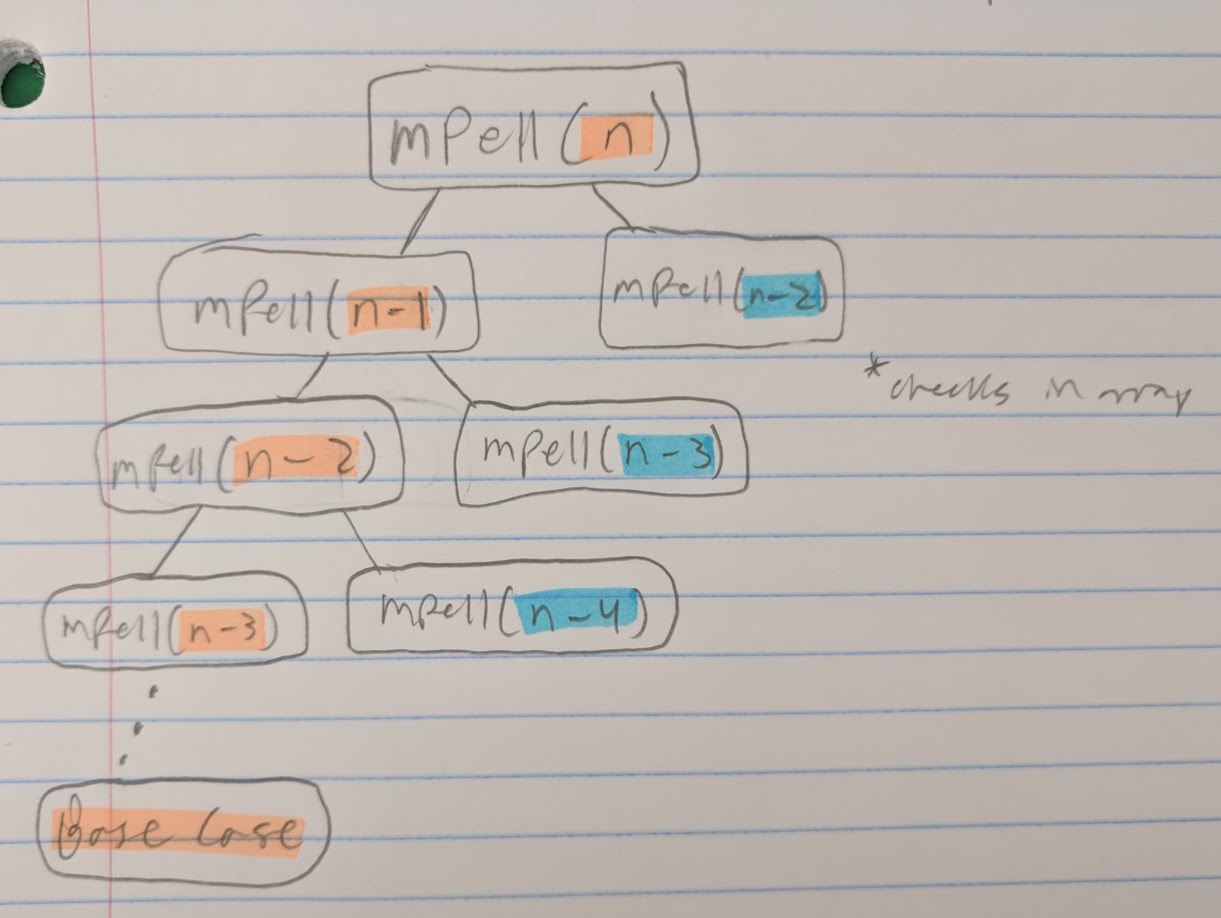 mPell(n)
mPell(n-1)
mPell(n-2)
*checks in array
mPell(n-2)
mPell(n-3)
mPell(n-3)
mPell(n-4)
Base Case